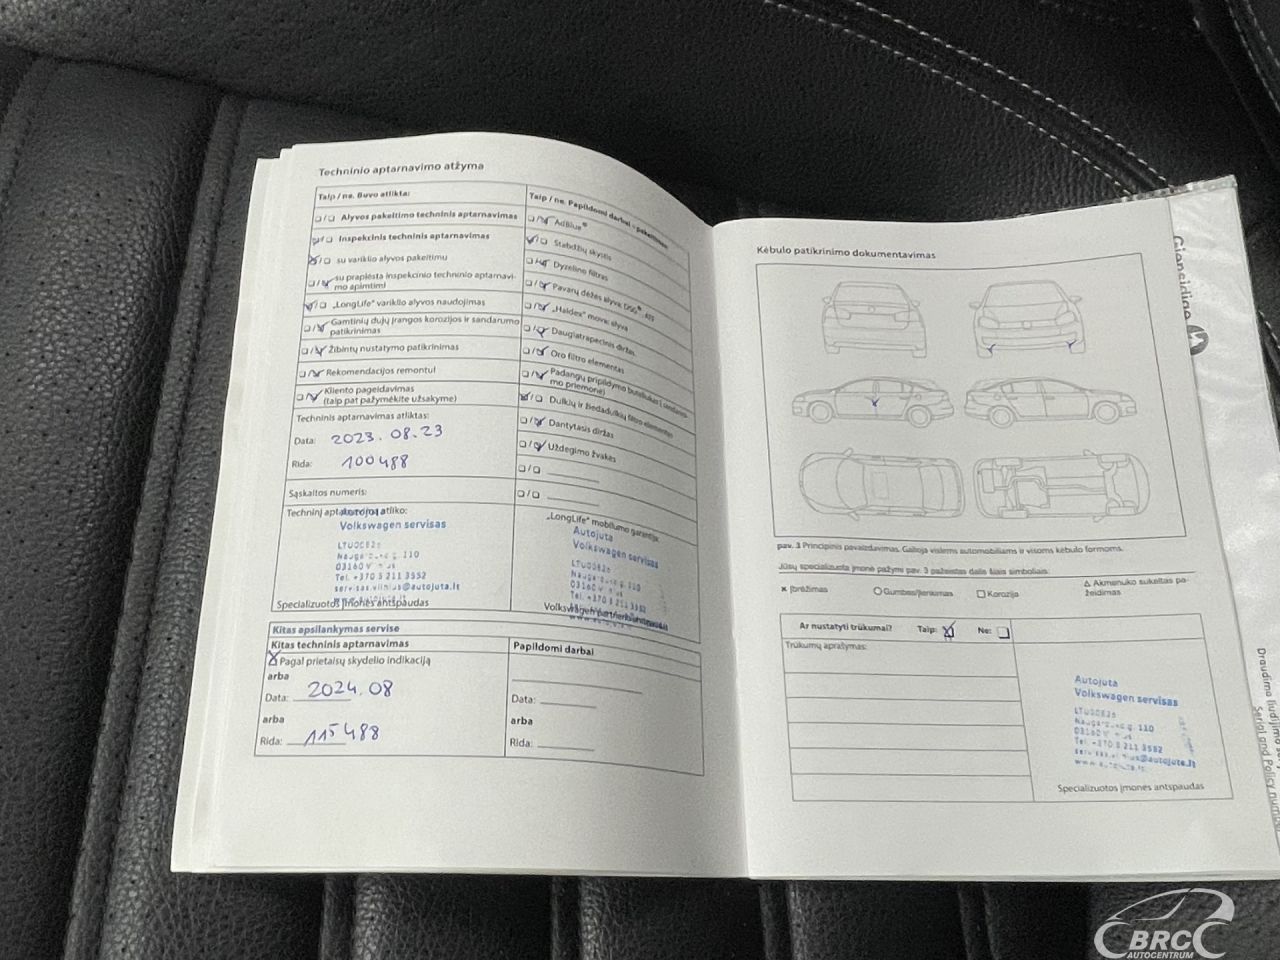 Techninio aptarnavimo atžyma
Taip / ne. Buvo atlikta:
Alyvos pakeitimo techninis aptarnavimas
Inspekcinis techninis aptarnavimas
su variklio alyvos pakeitimu
su praplėsta inspekcinio techninio aptarnavi-
mo apimtimi
„LongLife“ variklio alyvos naudojimas
Gamtinių dujų įrangos korozijos ir sandarumo
patikrinimas
Žibintų nustatymo patikrinimas
Rekomendacijos remontui
Kliento pageidavimas
(taip pat pažymėkite užsakyme)
Techninis aptarnavimas atliktas:
Data: 2023.08.23
Rida: 100488
Sąskaitos numeris:
Techninį aptarnavimą atliko:
Autojuta
Volkswagen servisas
03160
Tel. +370 5 211 3552
servisas.vilnius@autojuta.lt
www.autojuta.lt
Specializuotos įmonės antspaudas
Taip / ne. Papildomi darbai – pakeitimas
AdBlue®
Stabdžių skystis
Dyzelino filtras
Pavarų dėžės alyva: DSG®
„Haldex“ mova: alyva
Daugiatrapecinis diržas
Oro filtro elementas
Padangų pripildymo buteliukas (sandarini-
mo priemonė)
Dulkių ir žiedadulkių filtro elementas
Dantytasis diržas
Uždegimo žvakės
„LongLife“ mobilumo garantija:
Autojuta
Volkswagen servisas
03160
Tel. +370 5 211 3552
Kitas apsilankymas servise
Kitas techninis aptarnavimas
Pagal prietaisų skydelio indikaciją
arba
Data: 2024.08
arba
Rida: 115488
Papildomi darbai
Data:
arba
Rida:
Kėbulo patikrinimo dokumentavimas
pav. 3 Principinis pavaizdavimas. Galioja visiems automobiliams ir visoms kėbulo formoms.
Jūsų specializuota įmonė pažymi pav. 3 pažeistas dalis šiais simboliais:
Įbrėžimas
Gumbas/įlenkimas
Korozija
Akmenuko sukeltas pa-
žeidimas
Ar nustatyti trūkumai? Taip: Ne:
Trūkumų aprašymas:
Autojuta
Volkswagen servisas
03160
Tel. +370 5 211 3552
servisas.vilnius@autojuta.lt
Specializuotos įmonės antspaudas
Gjensidige
Draudimo liudijimo
Serial and Policy
BRC
AUTOCENTRUM